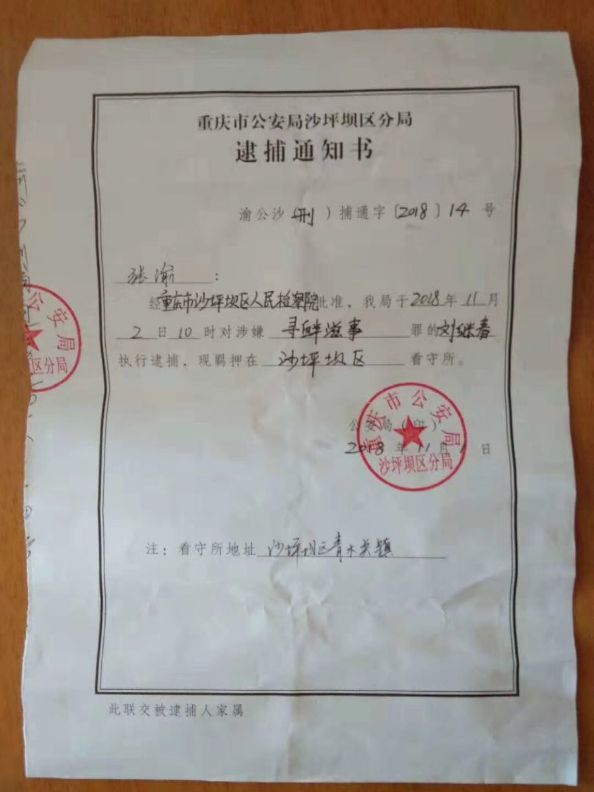 重庆市公安局沙坪坝区分局
逮捕通知书
渝公沙（刑）捕通字〔2018〕14 号
张渝：
经重庆市沙坪坝区人民检察院批准，我局于2018年11月
2日10时对涉嫌 寻衅滋事 罪的刘继春
执行逮捕，现羁押在 沙坪坝区 看守所。
公安局（印）
2018年11月 日
重庆市公安局
沙坪坝区分局
公安局
区分局
注：看守所地址 沙坪坝区青木关镇
此联交被逮捕人家属